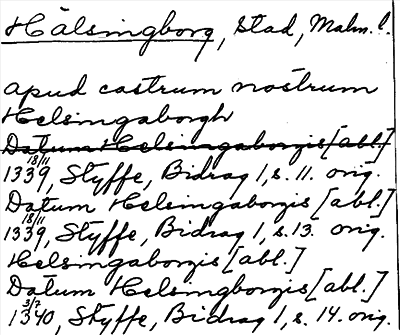 Hälsingborg, Stad, Malm. l.
apud castrum nostrum
Helsingaborgh
Datum Helsingaborgis [abl.]
18/11
1339, Styffe, Bidrag 1, s. 11. orig.
Datum Helsingaborgis [abl.]
18/11
1339, Styffe, Bidrag 1, s. 13. orig.
Helsingaborgis [abl.]
Datum Helsingborgis [abl.]
3/7
1340, Styffe, Bidrag 1, s. 14. orig.